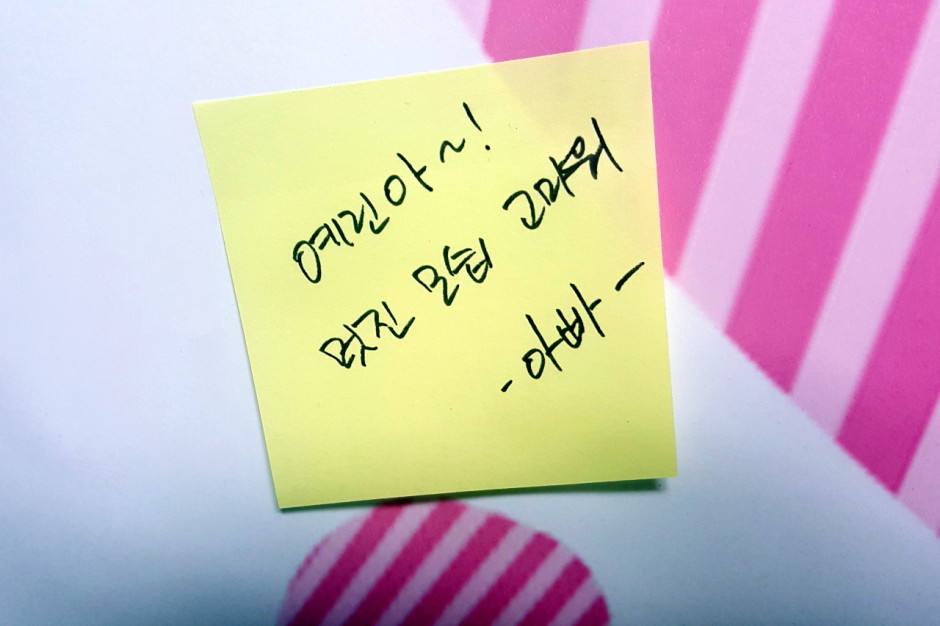 예린아~!
멋진 모습 고마워
-아빠-